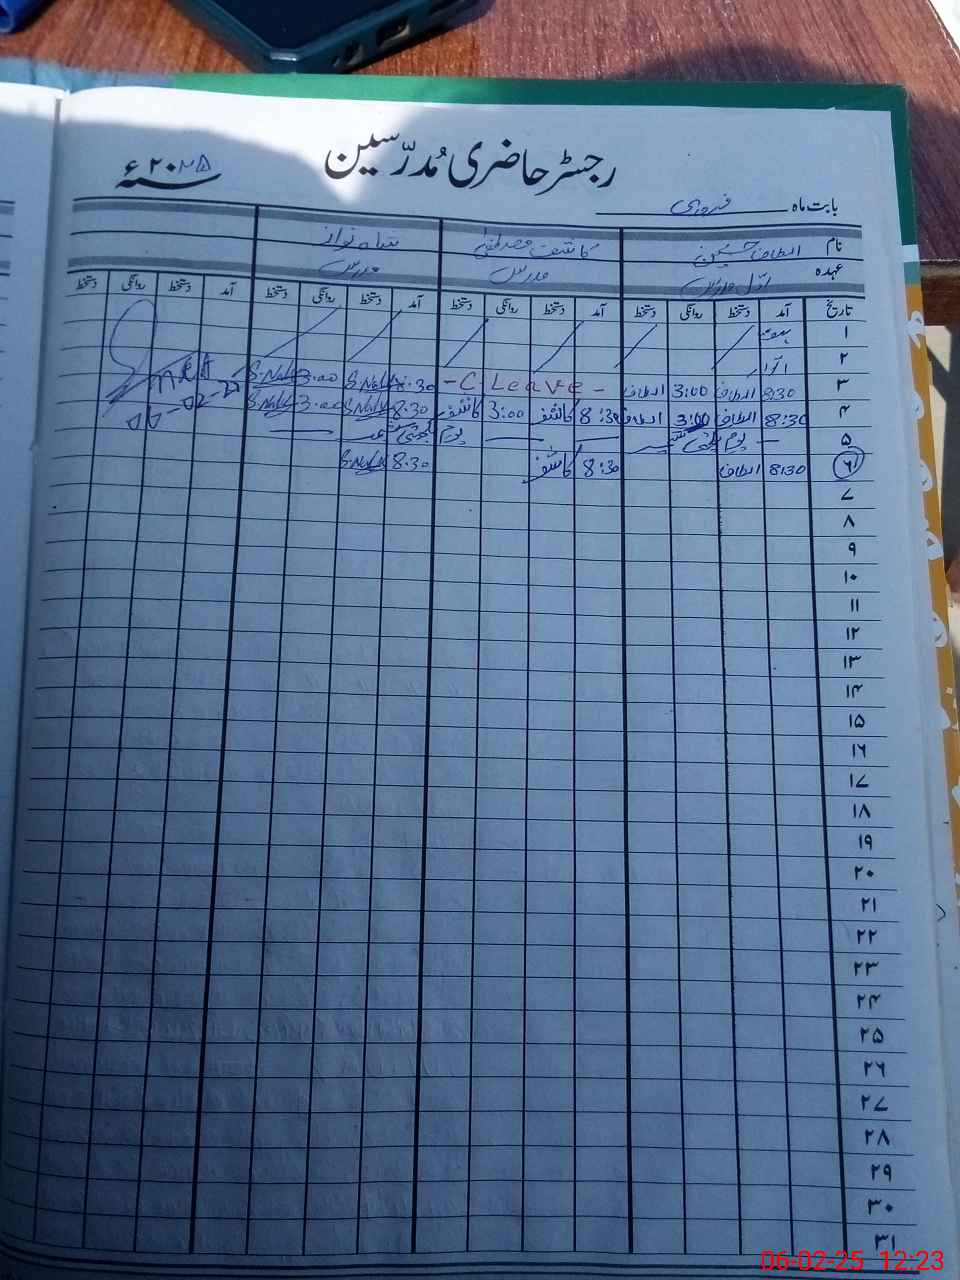 رجسٹر حاضری مُدرّسین
سنہ ۲۰۲۵ ء
بابت ماہ فروری
نام الطاف حسین کاشف مصطفیٰ شاہ نواز
عہدہ اول مدرس مدرس مدرس
تاریخ آمد دستخط روانگی دستخط آمد دستخط روانگی دستخط آمد دستخط روانگی دستخط آمد دستخط روانگی دستخط
۱ ہفتہ
۲ اتوار
۳ 8:30 الطاف 3:00 الطاف - C. Leave - 8.30 S.Nawaz 3.00 S.Nawaz
۴ 8:30 الطاف 3:00 الطاف 8:30 کاشف 3:00 کاشف 8.30 S.Nawaz 3.00 S.Nawaz
06-02-25
۵ — یوم یکجہتی کشمیر — — یوم یکجہتی کشمیر —
۶ 8:30 الطاف 8:30 کاشف 8.30 S.Nawaz
۷
۸
۹
۱۰
۱۱
۱۲
۱۳
۱۴
۱۵
۱۶
۱۷
۱۸
۱۹
۲۰
۲۱
۲۲
۲۳
۲۴
۲۵
۲۶
۲۷
۲۸
۲۹
۳۰
۳۱
06-02-25 12:23